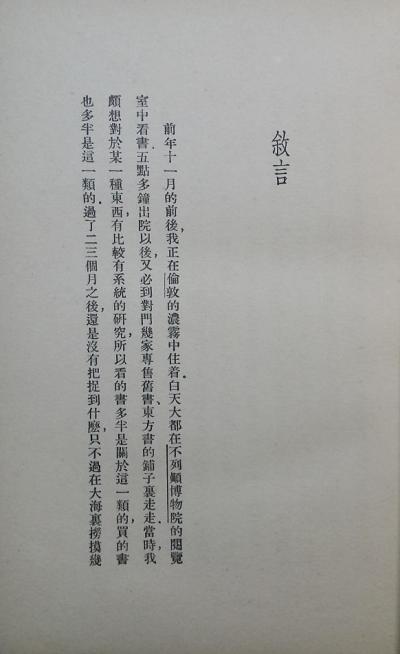 敘言
前年十一月的前後，我正在倫敦的濃霧中住着．白天大都在不列顛博物院的閱覽
室中看書．五點多鐘出院以後，又必到對門幾家專售舊書、東方書的鋪子裏走走．當時，我
頗想對於某一種東西有比較有系統的研究，所以看的書多半是關於這一類的，買的書
也多半是這一類的．過了二三個月之後，還是沒有把捉到什麽，只不過在大海裏撈摸幾